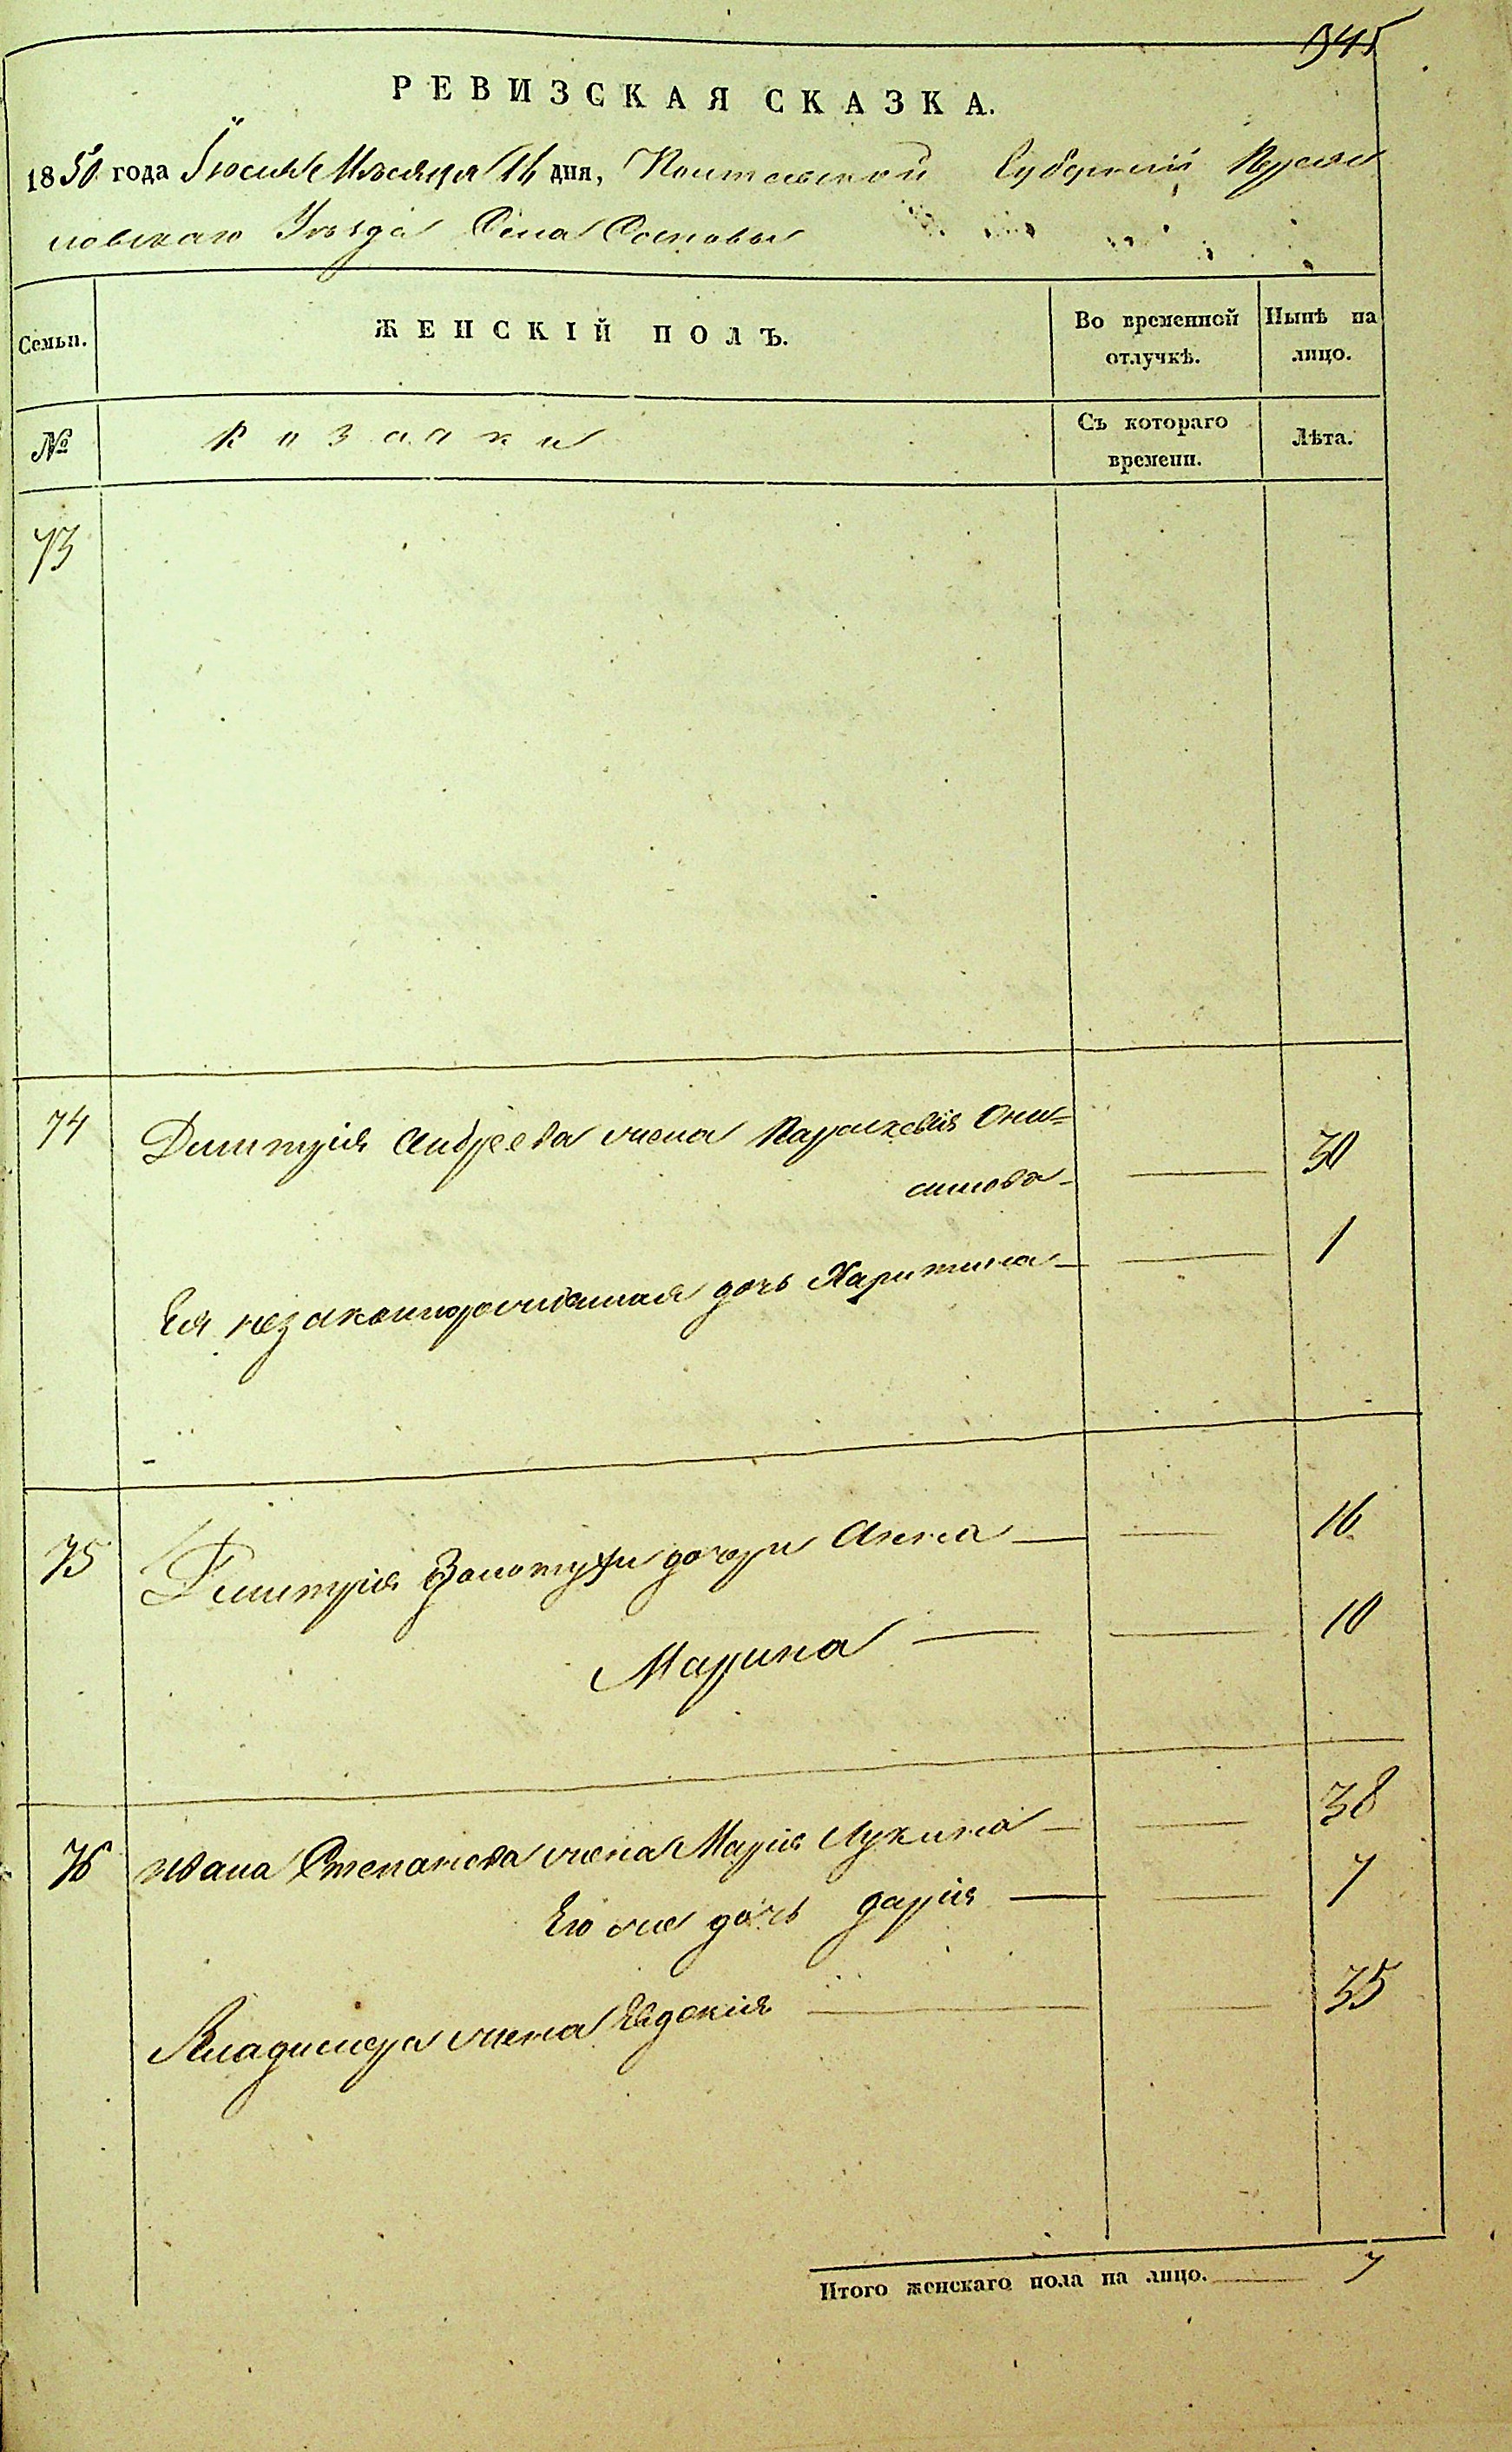 РЕВИЗСКАЯ СКАЗКА.
1850 года Іюля Мѣсяца 16 дня, Полтавской Губерніи
Уѣзда Села Сосновы
Семьи. ЖЕНСКІЙ ПОЛЪ. Во временной отлучкѣ. Нынѣ на лицо.
№ Козачки Съ котораго времени. Лѣта.
73
74 Димитрія Андреева жена Параскевія Они=
симова — 30
Ея незаконнорожденная дочь Харитина — 1
75 Димитрія Золотухи дочери Анна — 16
Марина — 10
76 Ивана Степанова жена Марія Лукина — 38
Его же дочь Дарія — 7
Владимера жена Евдокія — 35
Итого женскаго пола на лицо. 7